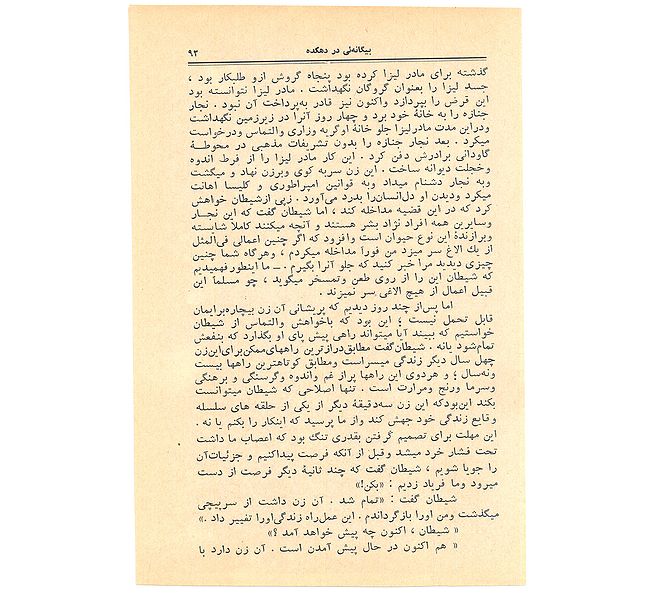 بیگانه‌ئی در دهکده ۹۳
گذشته برای مادر لیزا کرده بود پنجاه گروش ازو طلبکار بود ،
جسد لیزا را بعنوان گروگان نگهداشت . مادر لیزا نتوانسته بود
این قرض را بپردازد واکنون نیز قادر به‌پرداخت آن نبود . نجار
جنازه را به خانهٔ خود برد و چهار روز آنرا در زیرزمین نگهداشت
ودراین مدت مادرلیزا جلو خانهٔ اوگریه وزاری والتماس ودرخواست
میکرد . بعد نجار جنازه را بدون تشریفات مذهبی در محوطهٔ
گاودانی برادرش دفن کرد . این کار مادر لیزا را از فرط اندوه
وخجلت دیوانه ساخت . این زن سربه کوی وبرزن نهاد و میگشت
وبه نجار دشنام میداد وبه قوانین امپراطوری و کلیسا اهانت
میکرد ودیدن او دل‌انسان‌را بدرد می‌آورد . زپی ازشیطان خواهش
کرد که در این قضیه مداخله کند ، اما شیطان گفت که این نجار
وسایرین همه افراد نژاد بشر هستند و آنچه میکنند کاملا شایسته
وبرازندهٔ این نوع حیوان است وافزود که اگر چنین اعمالی فی‌المثل
از یك الاغ سر میزد من فوراً مداخله میکردم ، وهرگاه شما چنین
چیزی دیدید مرا خبر کنید که جلو آنرا بگیرم . ــ ما اینطور فهمیدیم
که شیطان این را از روی طعن وتمسخر میگوید ، چو مسلماً این
قبیل اعمال از هیچ الاغی سر نمیزند .
اما پس‌از چند روز دیدیم که پریشانی آن زن بیچاره‌برایمان
قابل تحمل نیست ؛ این بود که باخواهش والتماس از شیطان
خواستیم که ببیند آیا میتواند راهی پیش پای او بگذارد که بنفعش
تمام‌شود یانه . شیطان‌گفت مطابق‌درازترین راههای‌ممکن‌برای‌این‌زن
چهل سال دیگر زندگی میسراست ومطابق کوتاهترین راهها بیست
ونه‌سال ؛ و هردوی این راهها پراز غم واندوه وگرسنگی و برهنگی
وسرما ورنج ومرارت است . تنها اصلاحی که شیطان میتوانست
بکند این‌بودکه این زن سه‌دقیقهٔ دیگر از یکی از حلقه های سلسله
وقایع زندگی خود جهش کند واز ما پرسید که اینکار را بکنم یا نه .
این مهلت برای تصمیم گرفتن بقدری تنگ بود که اعصاب ما داشت
تحت فشار خرد میشد وقبل از آنکه فرصت پیداکنیم و جزئیات‌آن
را جویا شویم ، شیطان گفت که چند ثانیهٔ دیگر فرصت از دست
میرود وما فریاد زدیم : «بکن!»
شیطان گفت : «تمام شد . آن زن داشت از سرپیچی
میگذشت ومن اورا بازگرداندم . این عمل‌راه زندگی‌اورا تغییر داد .»
« شیطان ، اکنون چه پیش خواهد آمد ؟»
« هم اکنون در حال پیش آمدن است . آن زن دارد با